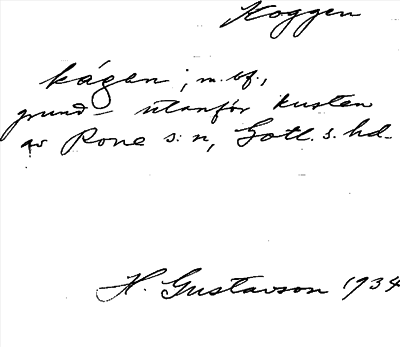 Koggen
kågen; m. bf.,
grund – utanför kusten
av Rone s:n, Gotl. s. hd.
H. Gustavson 1934